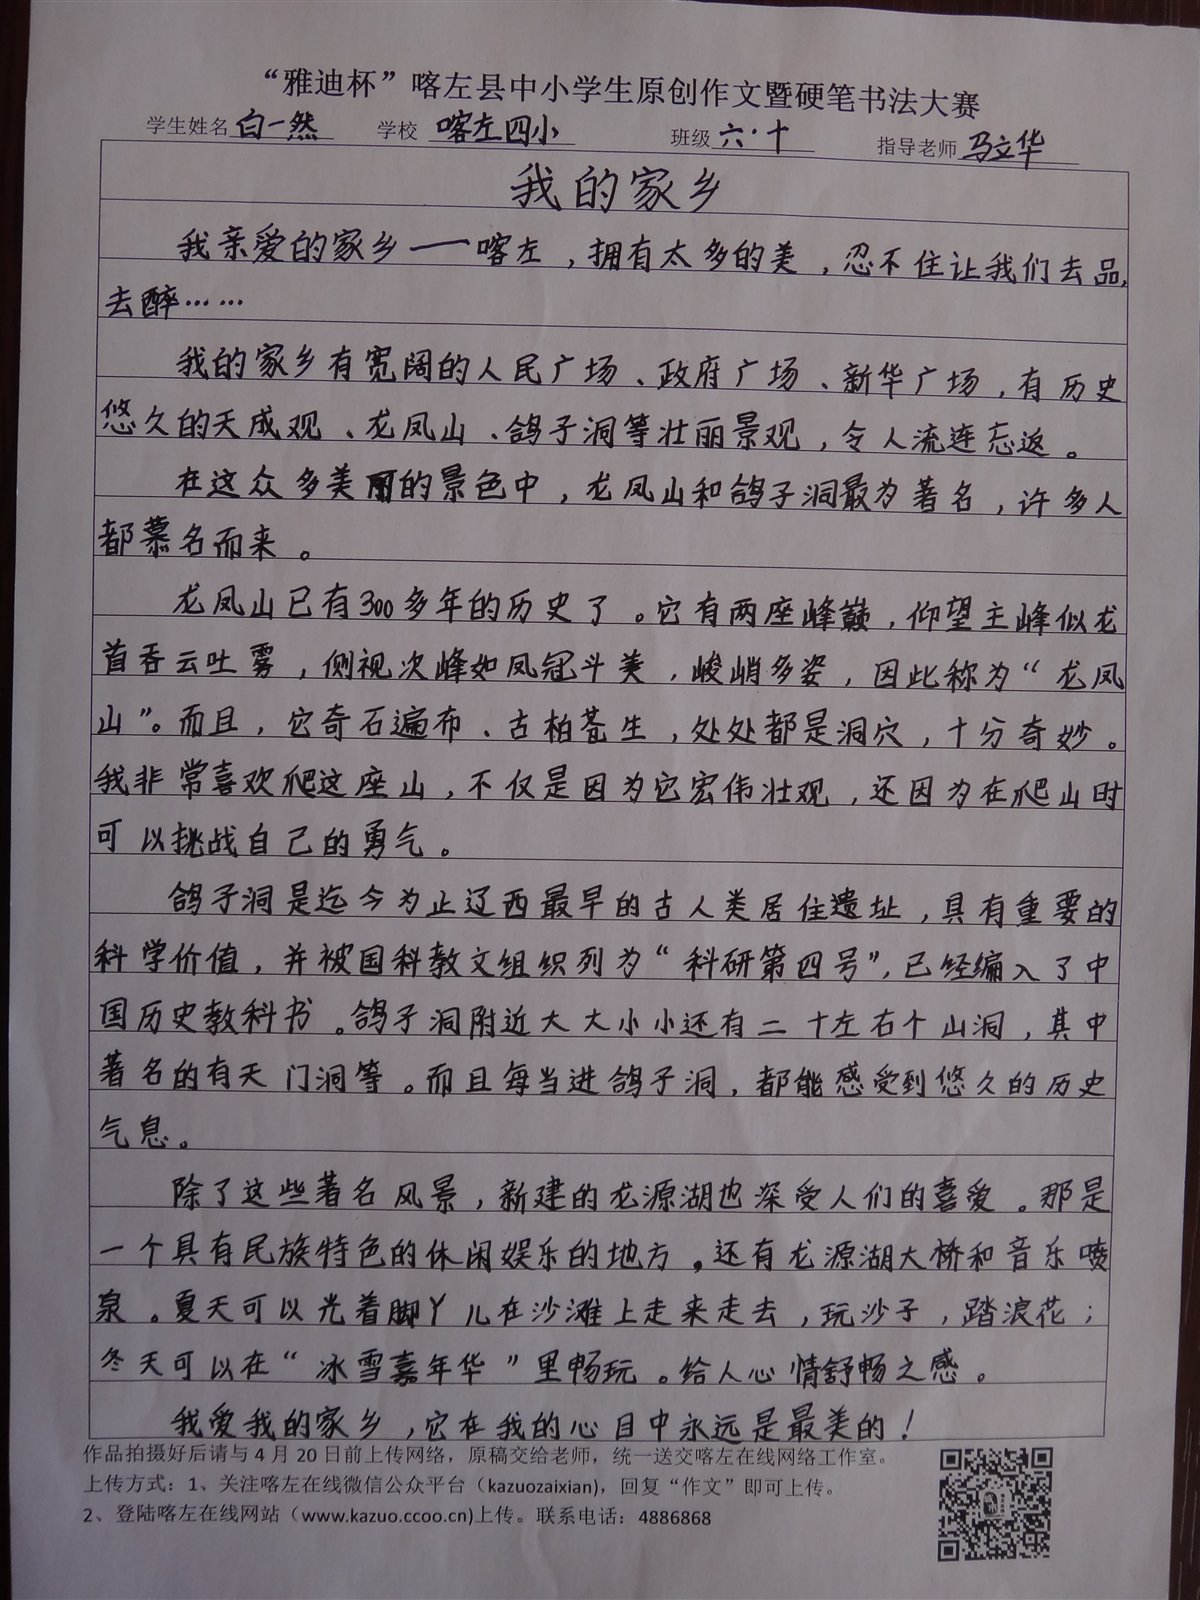 “雅迪杯”喀左县中小学生原创作文暨硬笔书法大赛
学生姓名 白一然 学校 喀左四小 班级 六·十 指导老师 马立华
我的家乡
我亲爱的家乡——喀左，拥有太多的美，忍不住让我们去品，
去醉……
我的家乡有宽阔的人民广场、政府广场、新华广场，有历史
悠久的天成观、龙凤山、鸽子洞等壮丽景观，令人流连忘返。
在这众多美丽的景色中，龙凤山和鸽子洞最为著名，许多人
都慕名而来。
龙凤山已有300多年的历史了。它有两座峰巅，仰望主峰似龙
首吞云吐雾，侧视次峰如凤冠斗美，峻峭多姿，因此称为“龙凤
山”。而且，它奇石遍布、古柏苍生，处处都是洞穴，十分奇妙。
我非常喜欢爬这座山，不仅是因为它宏伟壮观，还因为在爬山时
可以挑战自己的勇气。
鸽子洞是迄今为止辽西最早的古人类居住遗址，具有重要的
科学价值，并被国科教文组织列为“科研第四号”，已经编入了中
国历史教科书。鸽子洞附近大大小小还有二十左右个山洞，其中
著名的有天门洞等。而且每当进鸽子洞，都能感受到悠久的历史
气息。
除了这些著名风景，新建的龙源湖也深受人们的喜爱。那是
一个具有民族特色的休闲娱乐的地方，还有龙源湖大桥和音乐喷
泉。夏天可以光着脚丫儿在沙滩上走来走去，玩沙子，踏浪花；
冬天可以在“冰雪嘉年华”里畅玩。给人心情舒畅之感。
我爱我的家乡，它在我的心目中永远是最美的！
作品拍摄好后请与4月20日前上传网络，原稿交给老师，统一送交喀左在线网络工作室。
上传方式：1、关注喀左在线微信公众平台（kazuozaixian)，回复“作文”即可上传。
2、登陆喀左在线网站（www.kazuo.ccoo.cn)上传。联系电话：4886868